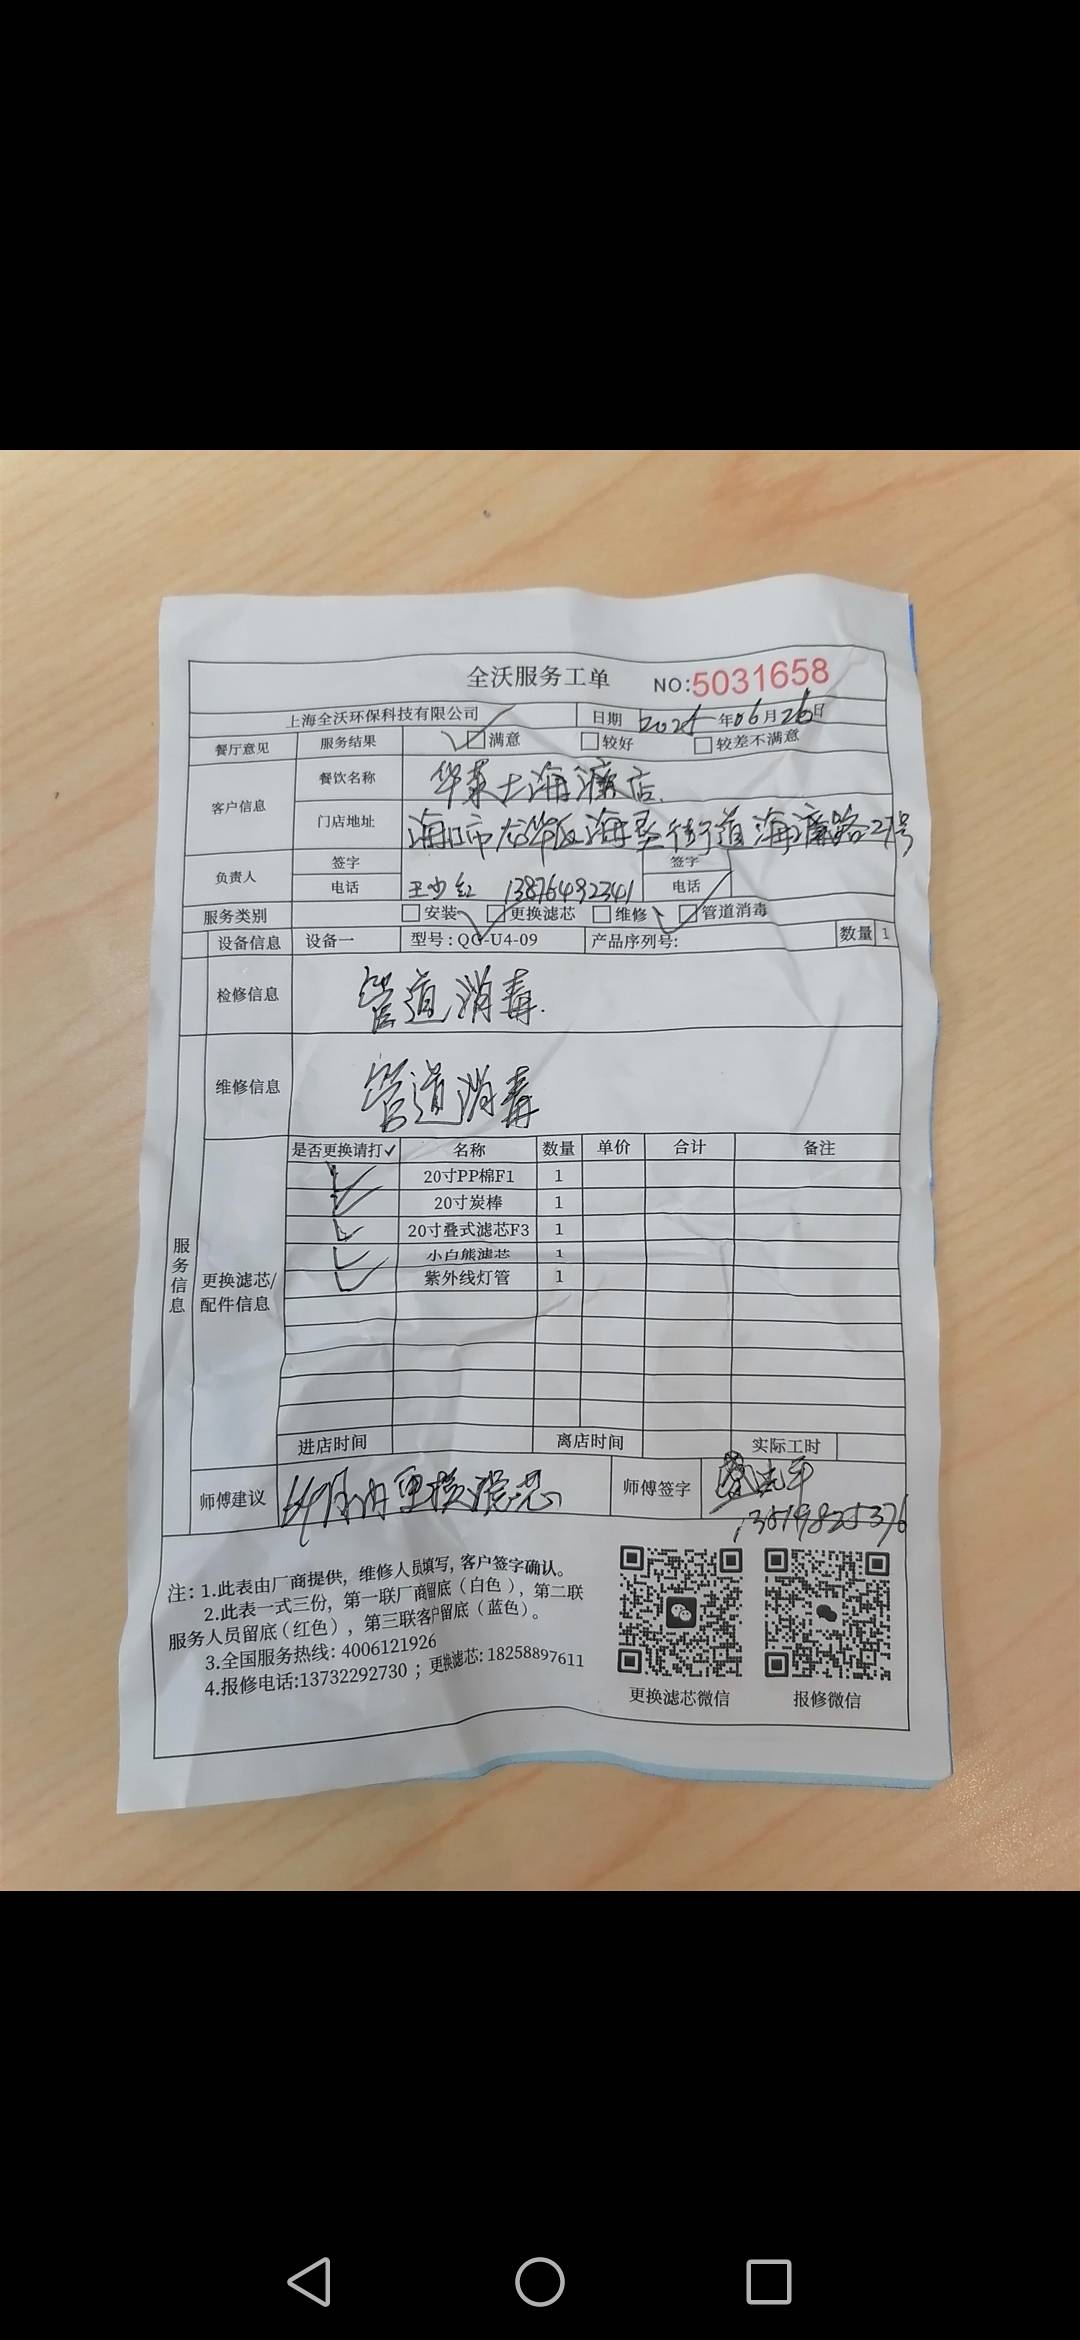 全沃服务工单 NO:5031658
上海全沃环保科技有限公司 日期 2025年06月26日
餐厅意见 服务结果 ✓□满意 □较好 □较差不满意
客户信息 餐饮名称 华莱士海濂店.
门店地址 海口市龙华区海垦街道海濂路27号
负责人 签字 签字
电话 王少红 13876492341 电话
服务类别 □安装 ✓□更换滤芯 □维修 ✓□管道消毒
设备信息 设备一 型号:QG-U4-09 产品序列号: 数量 1
检修信息 管道消毒.
维修信息 管道消毒
服务信息
更换滤芯/配件信息
是否更换请打✓ 名称 数量 单价 合计 备注
✓ 20寸PP棉F1 1
✓ 20寸炭棒 1
✓ 20寸叠式滤芯F3 1
✓ 小白熊滤芯 1
✓ 紫外线灯管 1
进店时间 离店时间 实际工时
师傅建议 月内更换滤芯 师傅签字
13519825376
注: 1.此表由厂商提供，维修人员填写, 客户签字确认。
2.此表一式三份，第一联厂商留底（白色），第二联
服务人员留底（红色），第三联客户留底（蓝色）。
3.全国服务热线: 4006121926
4.报修电话:13732292730 ；更换滤芯: 18258897611
更换滤芯微信 报修微信